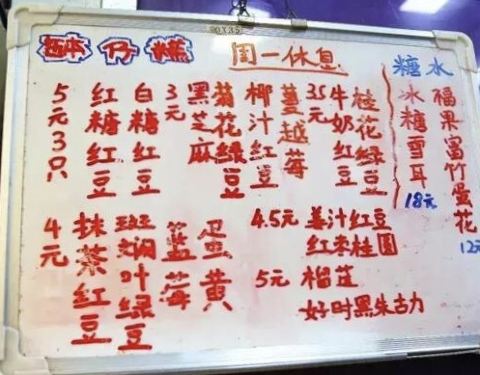 砵仔糕
周一休息
5元3只
红糖红豆
白糖红豆
3元
黑芝麻
菊花绿豆
椰汁红豆
蔓越莓
3.5元
牛奶红豆
桂花绿豆
4元
抹茶红豆
斑斓叶绿豆
蓝莓
蛋黄
4.5元 姜汁红豆
红枣桂圆
5元 榴莲
好时黑朱古力
糖水
冰糖雪耳
18元
福果富竹蛋花
12元